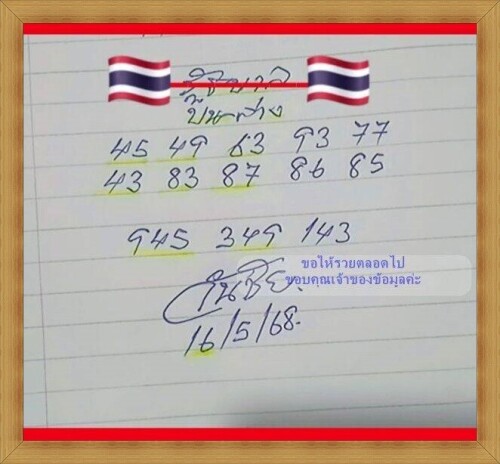 รัฐบาล
ปั๊นฟาง
45 49 63 93 77
43 83 87 86 85
945 349 143
ขอให้รวยตลอดไป
ขอบคุณเจ้าของข้อมูลค่ะ
วันชัย.
16/5/68.